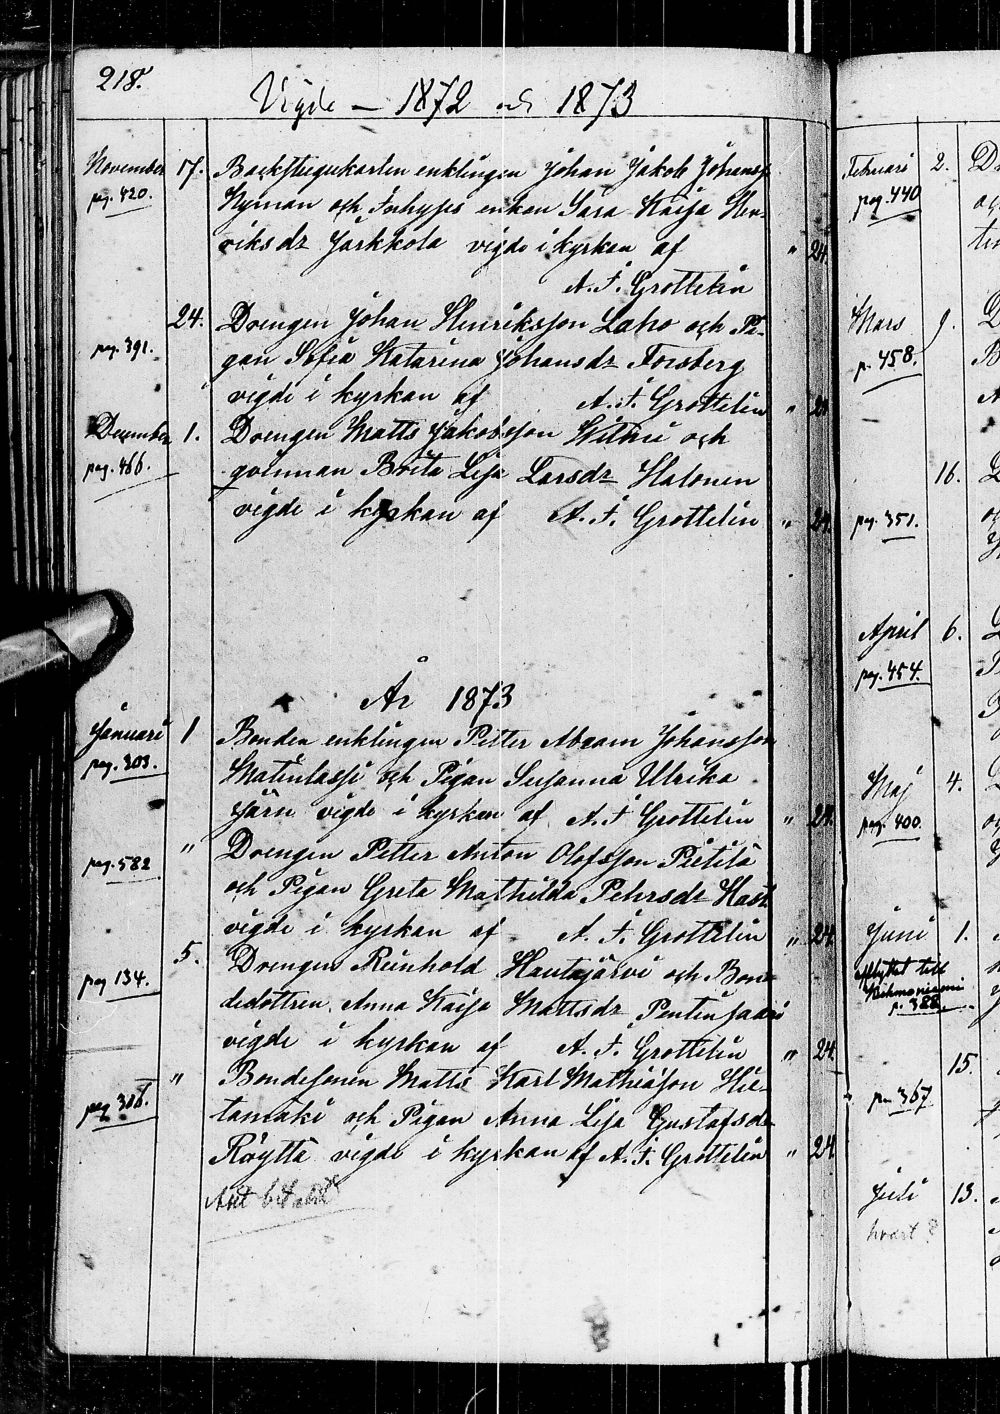 218.
Vigde – 1872 och 1873
November 17. Backstugukarlen enklingen Johan Jakob Johanss:
pag. 420. Nyman och Inhyses enkan Sara Kaisa Hen-
riksdr Jarkkola vigde i kyrkan af " 24.
A. F. Grottelin
24. Drengen Johan Henriksson Laho och Pi-
pag. 391. gan Sofia Katarina Johansdr Forsberg
vigde i kyrkan af A. F. Grottelin " 24
December 1. Drengen Matts Jakobsson och
pag. 466. qvinnan Brita Lisa Larsdr Halonen
vigde i kyrkan af A. F. Grottelin " 24.
År 1873
Januari 1 Bonden enklingen Petter Abram Johansson
pag. 303. Matinlassi och Pigan Susanna Ulrika
Järn vigde i kyrkan af A. F Grottelin " 24.
" Drengen Petter Anton Olofsson Pietilä
pag. 582 och Pigan Greta Mathilda Pehrsdr Hast
vigde i kyrkan af A. F. Grottelin " 24.
5. Drengen Reinhold Hautajärvi och Bon-
pag 134. dedottren Anna Kaisa Mattsdr Pentinsaari
vigde i kyrkan af A. F. Grottelin " 24.
" Bondesonen Matts Karl Mathiasson Hie-
pag 306. tamäki och Pigan Anna Lisa Gustafsdr
Röyttä vigde i kyrkan af A. F. Grottelin " 24
Februari 2.
pag. 440
Mars 9.
p. 458.
16.
pag. 351.
April 6.
pag. 454.
Maj 4.
pag. 400.
Juni 1.
till
p. 388.
15.
367
Juli 13.
hvart?